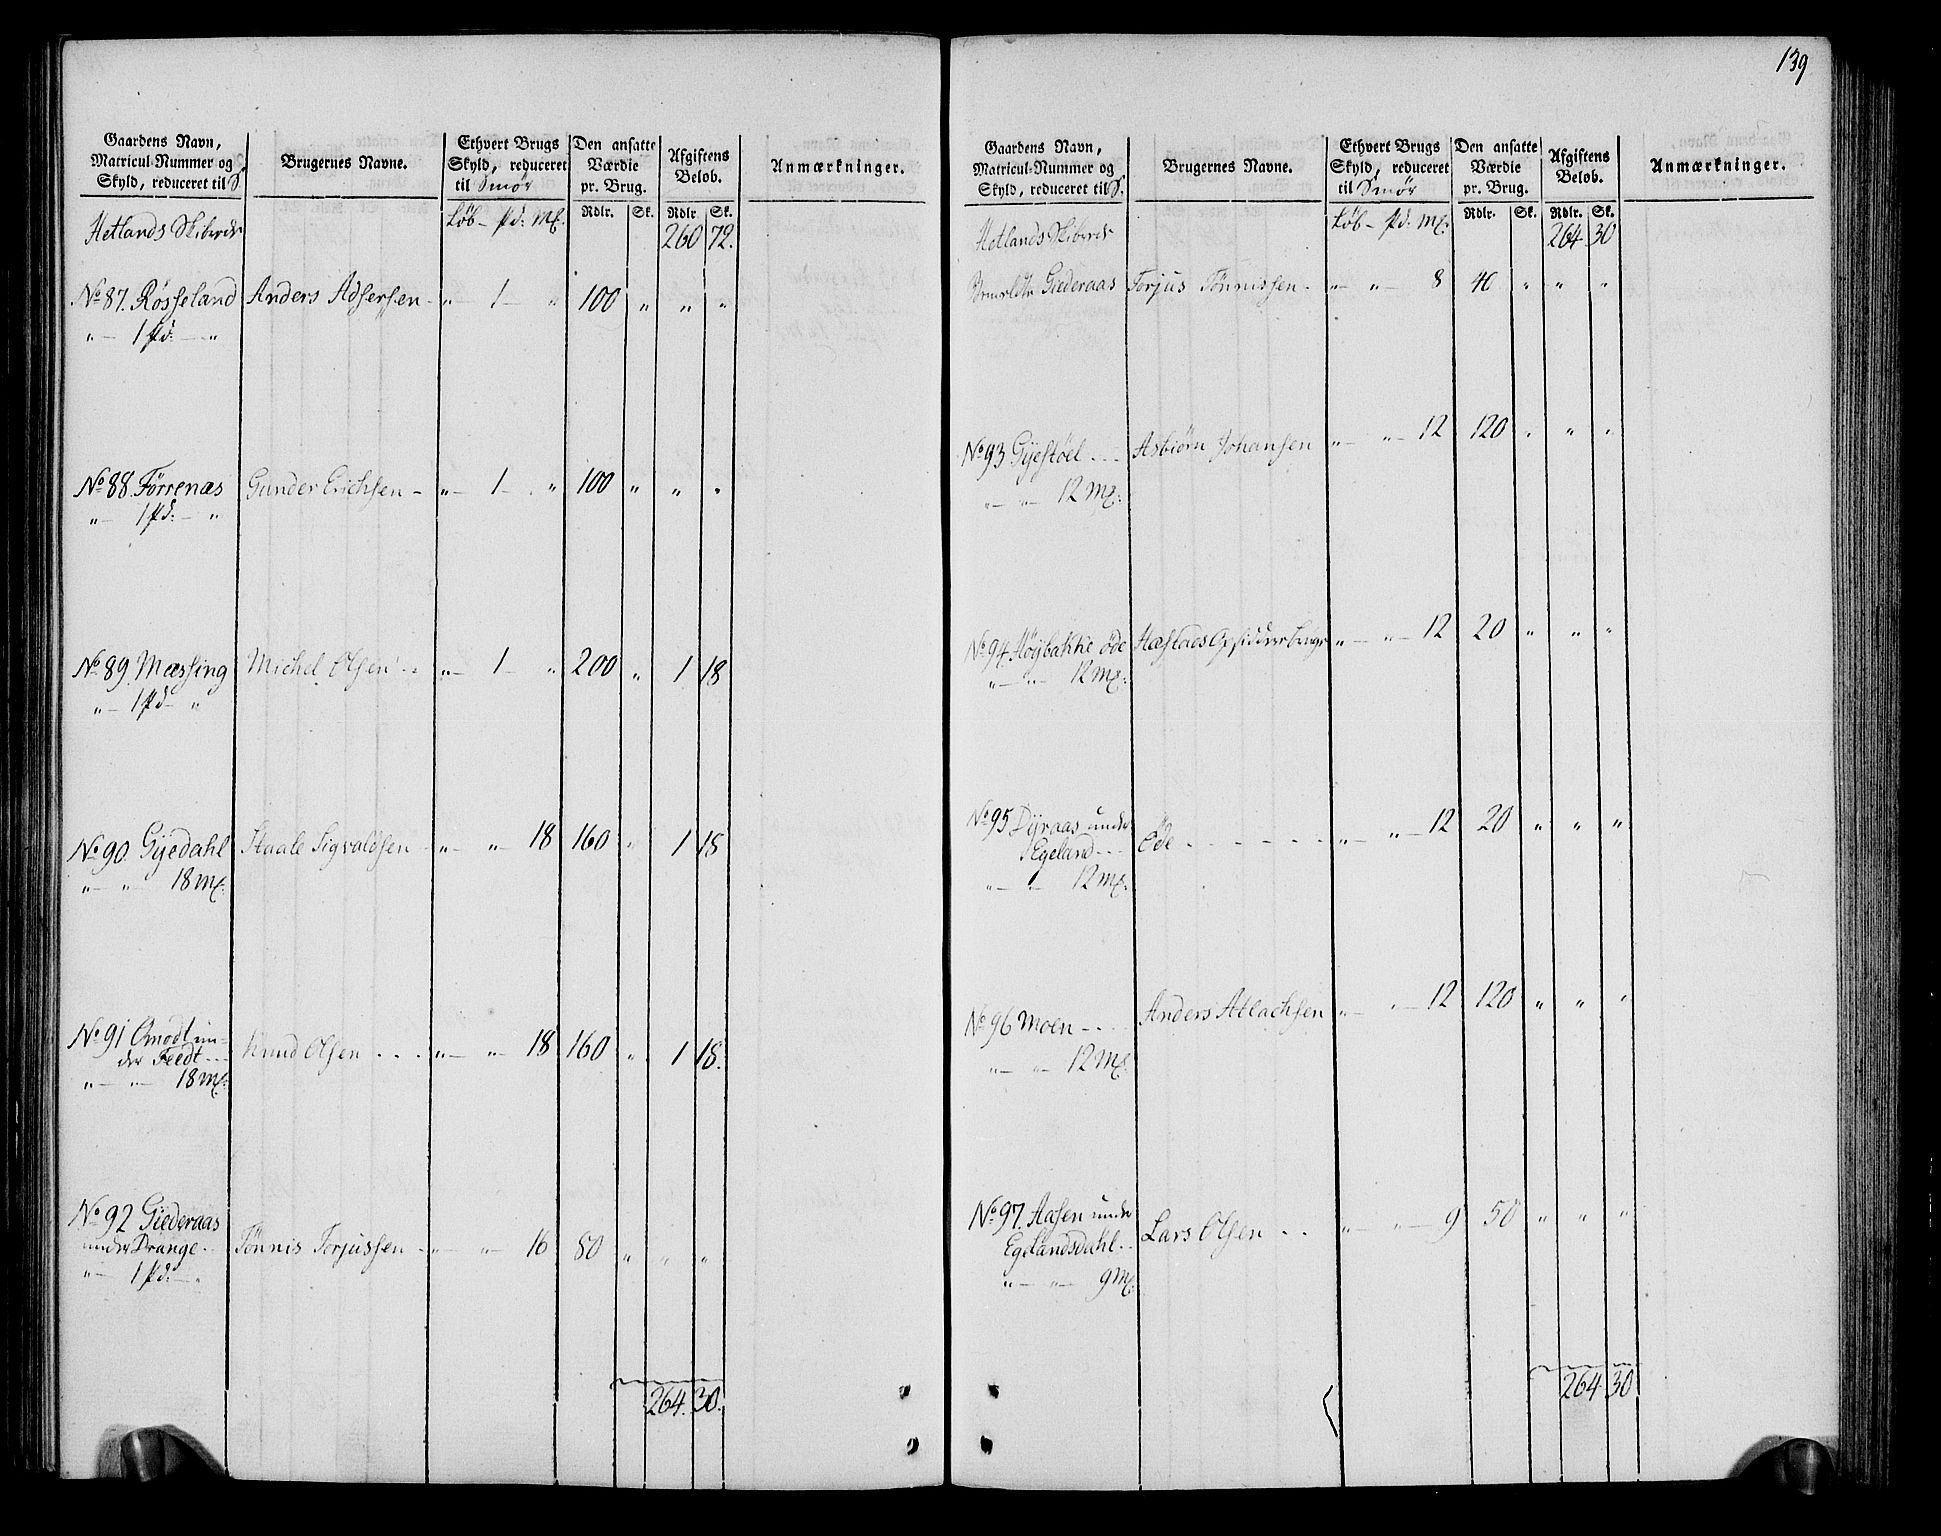 Gaardens Navn, Matricul-Nummer og Skyld, reduceret til S. | Brugernes Navne. | Ethvert Brugs Skyld, reduceret til Smør | Den ansatte Værdie pr. Brug. | Afgiftens Beløb. | Anmærkninger.
Løb – pd: mk: | Rdlr. | Sk. | Rdlr. | Sk.
Hetlands Skibrede 260 72.
No 87. Røsseland Anders Adsersen - „ — 1 — „ 100 „ „ „
„ — 1 pd: — „
No 88. Førrenæs Gunder Erichsen - „ — 1 — „ 100 „ „ „
„ — 1 pd: — „
No 89. Mæssing Michel Olsen - „ — 1 — „ 200 „ 1 18
„ — 1 pd — „
No 90. Gyedahl Staale Sigvaldsen „ — „ — 18 160 „ 1 18
„ — „ — 18 mk:
No 91 Omodt un-
der Feedt - - Knud Olsen . . . „ — „ — 18 160 „ 1 18.
„ — „ — 18 mk:
No 92 Giederaas
under Drange - Tönnis Torjussen - „ — „ — 16 80 „ „ „
„ — 1 pd: — „
264. 30.
139
Gaardens Navn, Matricul-Nummer og Skyld, reduceret til S. | Brugernes Navne. | Ethvert Brugs Skyld, reduceret til Smør | Den ansatte Værdie pr. Brug. | Afgiftens Beløb. | Anmærkninger.
Løb – pd: mk: | Rdlr. | Sk. | Rdlr. | Sk.
Hetlands Skibrede 264 30
Giederaas Torjus Tönnissen - „ — „ — 8 40 „ „ „
No 93 Gyestöel - - - Asbiørn Johansen „ — „ — 12 120 „ „ „
„ — „ — 12 mk:
No 94 Høybakke øde „ — „ — 12 20 „ „ „
„ — „ — 12 mk:
No 95 Dyraas under
Egeland - - - Öde - - - - - - „ — „ — 12 20 „ „ „
„ — „ — 12 mk:
No 96 Moen - - - - Anders Atlachsen „ — „ — 12 120 „ „ „
„ — „ — 12 mk:
No 97. Aasen under
Egelandsdahl - - Lars Olsen . . „ — „ — 9 50 „ „ „
„ — „ — 9 mk:
264 30